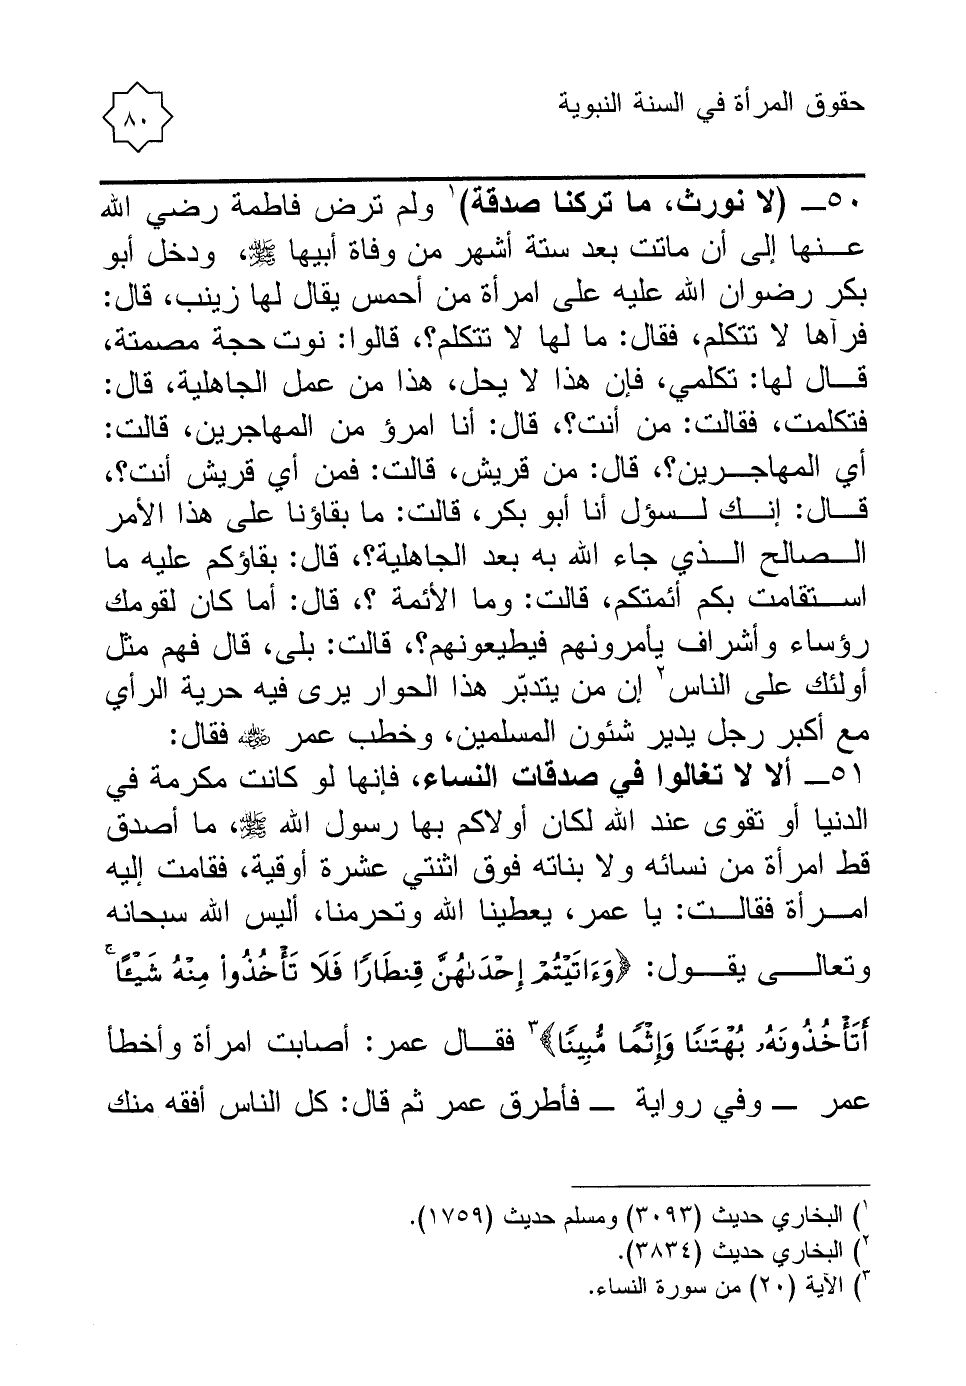 حقوق المرأة في السنة النبوية
٨٠
٥٠ـ (لا نورث، ما تركنا صدقة)١ ولم ترض فاطمة رضي الله
عـنها إلى أن ماتت بعد ستة أشهر من وفاة أبيها ﷺ، ودخل أبو
بكر رضوان الله عليه على امرأة من أحمس يقال لها زينب، قال:
فرآها لا تتكلم، فقال: ما لها لا تتكلم؟، قالوا: نوت حجة مصمتة،
قـال لها: تكلمي، فإن هذا لا يحل، هذا من عمل الجاهلية، قال:
فتكلمت، فقالت: من أنت؟، قال: أنا امرؤ من المهاجرين، قالت:
أي المهاجـرين؟، قال: من قريش، قالت: فمن أي قريش أنت؟،
قـال: إنـك لـسؤل أنا أبو بكر، قالت: ما بقاؤنا على هذا الأمر
الـصالح الـذي جاء الله به بعد الجاهلية؟، قال: بقاؤكم عليه ما
اسـتقامت بكم أئمتكم، قالت: وما الأئمة ؟، قال: أما كان لقومك
رؤساء وأشراف يأمرونهم فيطيعونهم؟، قالت: بلى، قال فهم مثل
أولئك على الناس٢ إن من يتدبّر هذا الحوار يرى فيه حرية الرأي
مع أكبر رجل يدير شئون المسلمين، وخطب عمر ﵁ فقال:
٥١ـ ألا لا تغالوا في صدقات النساء، فإنها لو كانت مكرمة في
الدنيا أو تقوى عند الله لكان أولاكم بها رسول الله ﷺ، ما أصدق
قط امرأة من نسائه ولا بناته فوق اثنتي عشرة أوقية، فقامت إليه
امـرأة فقالـت: يا عمر، يعطينا الله وتحرمنا، أليس الله سبحانه
وتعالـى يقـول: ﴿وَءَاتَيْتُمْ إِحْدَىٰهُنَّ قِنطَارًا فَلَا تَأْخُذُوا۟ مِنْهُ شَيْـًٔا ۚ
أَتَأْخُذُونَهُۥ بُهْتَـٰنًا وَإِثْمًا مُّبِينًا﴾٣ فقـال عمر: أصابت امرأة وأخطأ
عمر ـ وفي رواية ـ فأطرق عمر ثم قال: كل الناس أفقه منك
١) البخاري حديث (٣٠٩٣) ومسلم حديث (١٧٥٩).
٢) البخاري حديث (٣٨٣٤).
٣) الآية (٢٠) من سورة النساء.